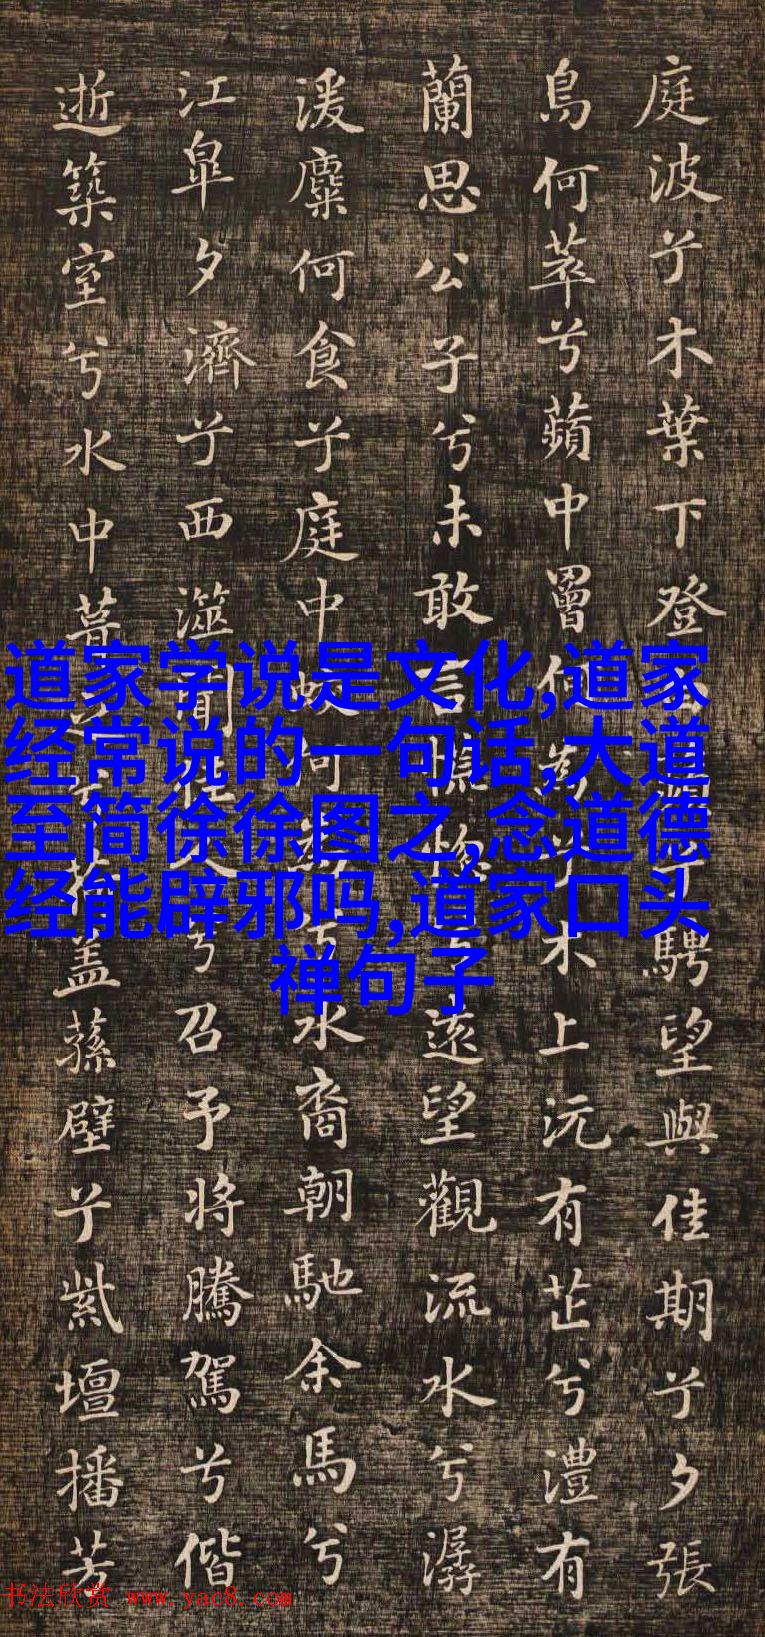 庭波兮木葉下登兮騁望與佳期兮夕張
鳥何萃兮蘋中罾何為兮木上沅有芷兮澧有
蘭思公子兮未敢言慌惚兮遠望觀流水兮潺
湲麋何食兮庭中蛟何為兮水裔朝馳余馬兮
江皋夕濟兮西澨聞佳人兮召予將騰駕兮偕
逝築室兮水中葺之兮荷蓋蓀壁兮紫壇播芳
道家学说是文化,道家
经常说的一句话,大道
至简徐徐图之,念道德
经能辟邪吗,道家口头
禅句子
书法欣赏 www.yac8.com